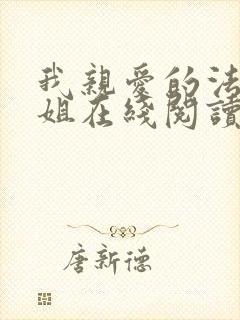 我親愛的法
姐在綫閱讀
唐新德